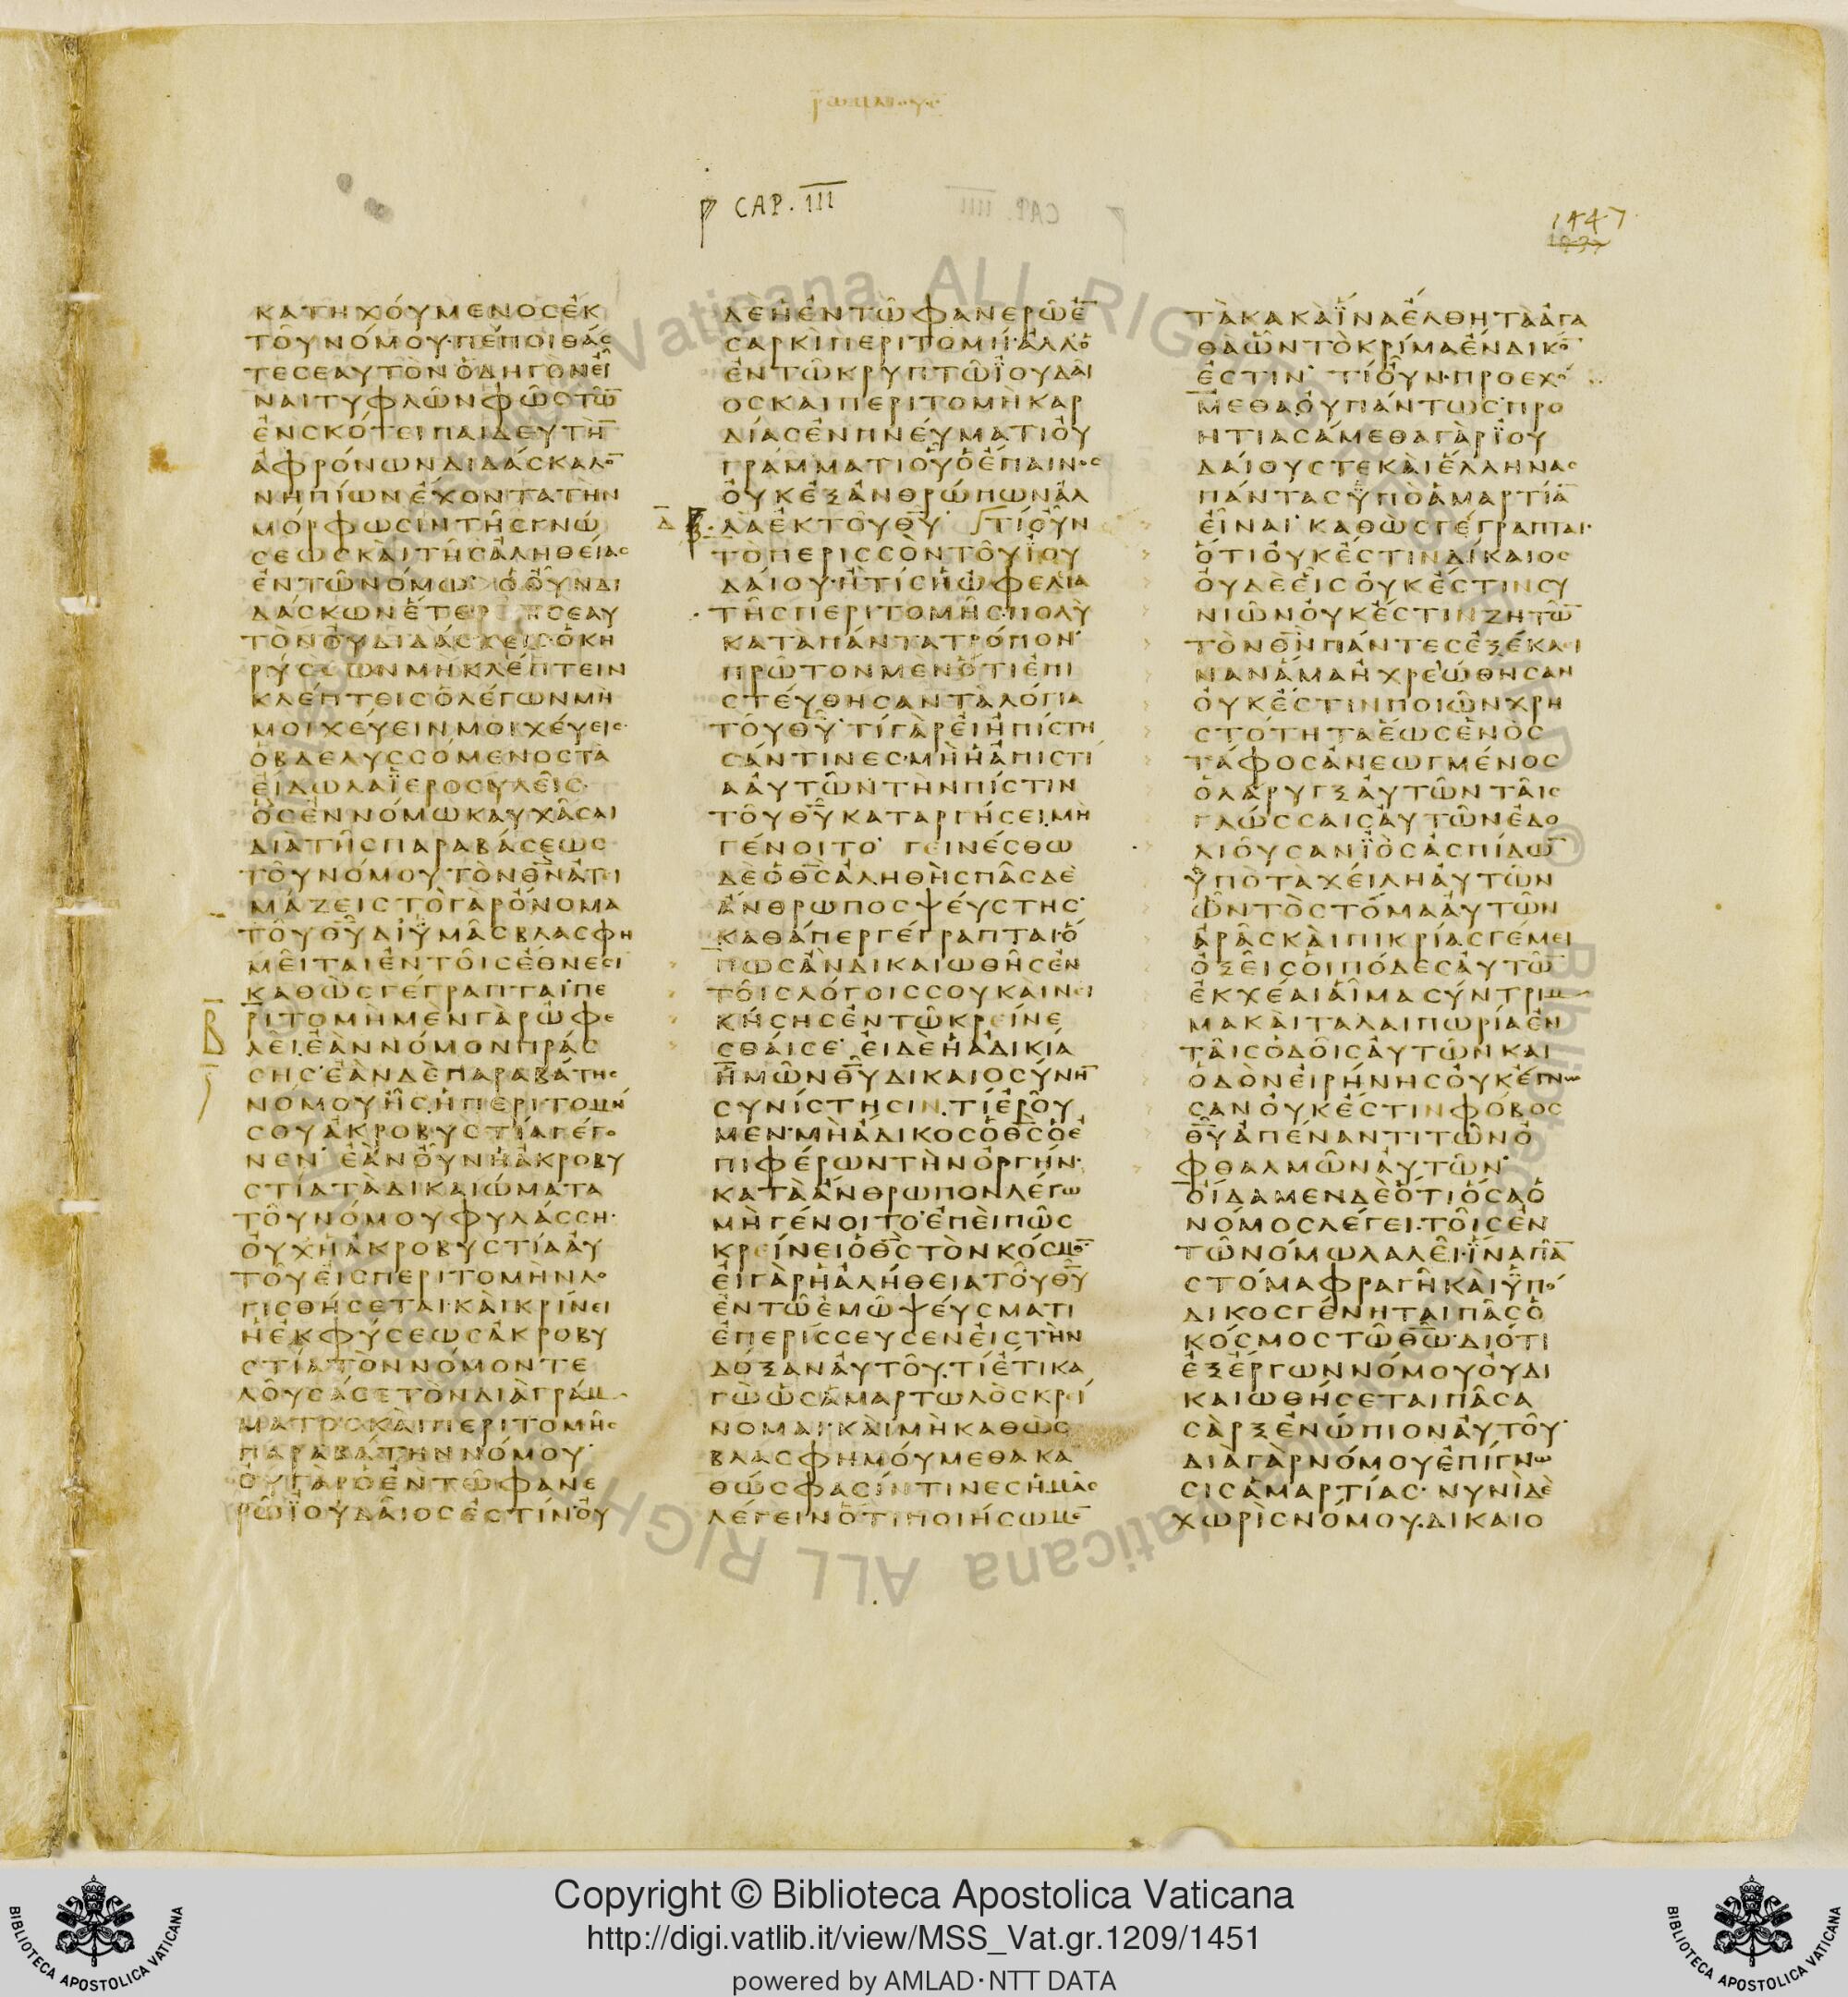 CAP. III
1447
ΚΑΤΗΧΟΎΜΕΝΟΣ ἘΚ
ΤΟῦ ΝΌΜΟΥ· ΠΈΠΟΙΘΆΣ
ΤΕ ΣΕΑΥΤῸΝ ὉΔΗΓῸΝ ΕἾ
ΝΑΙ ΤΥΦΛῶΝ ΦῶΣ ΤῶΝ̅
ἘΝ ΣΚΌΤΕΙ ΠΑΙΔΕΥΤῊ̅
ἈΦΡΌΝΩΝ ΔΙΔΆΣΚΑΛΟ̅
ΝΗΠΊΩΝ ἜΧΟΝΤΑ ΤῊΝ
ΜΌΡΦΩΣΙΝ ΤῆΣ ΓΝΏ
ΣΕΩΣ ΚΑῚ ΤῆΣ ἈΛΗΘΕΊΑΣ
ἘΝ Τῶ ΝΌΜΩ· Ὁ ΟὖΝ ΔΙ
ΔΆΣΚΩΝ ἝΤΕΡΟΝ ΣΕΑΥ
ΤῸΝ ΟΥ ΔΙΔΆΣΚΕΙΣ· Ὁ ΚΗ
ΡΎΣΣΩΝ ΜῊ ΚΛΈΠΤΕΙΝ
ΚΛΈΠΤΕΙΣ Ὁ ΛΈΓΩΝ ΜῊ
ΜΟΙΧΕΎΕΙΝ ΜΟΙΧΕΎΕΙΣ·
Ὁ ΒΔΕΛΥΣΣΌΜΕΝΟΣ ΤᾺ
ΕἸΔΩΛΑ ἹΕΡΟΣΥΛΕῖΣ·
ὋΣ ἘΝ ΝΌΜΩ ΚΑΥΧᾶΣΑΙ
ΔΙᾺ ΤῆΣ ΠΑΡΑΒΆΣΕΩΣ
ΤΟῦ ΝΌΜΟΥ ΤῸΝ Θ̅Ν̅ ἈΤΙ
ΜΆΖΕΙΣ ΤῸ ΓᾺΡ ὌΝΟΜΑ
ΤΟῦ Θ̅Υ̅ ΔΙ ὙΜᾶΣ ΒΛΑΣΦΗ
ΜΕῖΤΑΙ ἘΝ ΤΟῖΣ ἜΘΝΕΣΙ
ΚΑΘῺΣ ΓΈΓΡΑΠΤΑΙ· ΠΕ
Β ΡΙΤΟΜῊ ΜῈΝ ΓᾺΡ ὨΦΕ
ΛΕῖ· ἘᾺΝ ΝΌΜΟΝ ΠΡΆΣ
ΣΗΣ· ἘᾺΝ ΔῈ ΠΑΡΑΒΆΤΗΣ
ΝΌΜΟΥ ἦΣ Ἡ ΠΕΡΙΤΟΜΉ
ΣΟΥ ἈΚΡΟΒΥΣΤΊΑ ΓΈΓΟ
ΝΕΝ· ἘᾺΝ ΟὖΝ Ἡ ἈΚΡΟΒΥ
ΣΤΊΑ ΤᾺ ΔΙΚΑΙΏΜΑΤΑ
ΤΟῦ ΝΌΜΟΥ ΦΥΛΆΣΣΗ·
ΟΥΧ Ἡ ἈΚΡΟΒΥΣΤΊΑ ΑΥ
ΤΟῦ ΕἸΣ ΠΕΡΙΤΟΜῊΝ ΛΟ
ΓΙΣΘΉΣΕΤΑΙ· ΚΑῚ ΚΡΊΝΕΙ
Ἡ ἘΚ ΦΎΣΕΩΣ ἈΚΡΟΒΥ
ΣΤΊΑ ΤῸΝ ΝΌΜΟΝ ΤΕ
ΛΟῦΣΑ ΣῈ ΤῸΝ ΔΙᾺ ΓΡΆΜ
ΜΑΤΟΣ ΚΑῚ ΠΕΡΙΤΟΜῆΣ
ΠΑΡΑΒΆΤΗΝ ΝΌΜΟΥ·
ΟΥ ΓᾺΡ Ὁ ἘΝ Τῶ ΦΑΝΕ
ΡῶΙ ΙΟΥΔΑῖΟΣ ἘΣΤΙΝ· ΟΥ
ΔῈ Ἡ ἘΝ Τῶ ΦΑΝΕΡῶ Ἐ̅
ΣΑΡΚῚ ΠΕΡΙΤΟΜΉ· ἈΛΛ Ὁ
ἘΝ Τῶ ΚΡΥΠΤῶ ΙΟΥΔΑῖ
ΟΣ ΚΑΙ ΠΕΡΙΤΟΜῊ ΚΑΡ
ΔΊΑΣ ἘΝ ΠΝΕΎΜΑΤΙ ΟΥ
ΓΡΆΜΜΑΤΙ ΟΥ Ὁ ἜΠΑΙΝΟΣ
ΟΥΚ ἘΞ ἈΝΘΡΏΠΩΝ ἈΛ
Δ ΛᾺ ἘΚ ΤΟῦ Θ̅Υ̅· ΤΊ ΟὖΝ
ΤῸ ΠΕΡΙΣΣῸΝ ΤΟῦ ΙΟΥ
ΔΑΊΟΥ· Ἢ ΤΊΣ Ἡ ὨΦΕΛΙΑ
ΤῆΣ ΠΕΡΙΤΟΜῆΣ· ΠΟΛῪ
ΚΑΤΑ ΠΆΝΤΑ ΤΡΌΠΟΝ·
ΠΡῶΤΟΝ ΜῈΝ ὍΤΙ ἘΠΙ
ΣΤΕΎΘΗΣΑΝ ΤᾺ ΛΌΓΙΑ
ΤΟῦ Θ̅Υ̅· ΤΊ ΓᾺΡ ΕἸ ἨΠΊΣΤΗ
ΣΆΝ ΤΙΝΕΣ· ΜῊ Ἡ ἈΠΙΣΤΙ
Α ΑΥΤῶΝ ΤῊΝ ΠΊΣΤΙΝ
ΤΟῦ Θ̅Υ̅ ΚΑΤΑΡΓΉΣΕΙ· ΜῊ
ΓΈΝΟΙΤΟ· ΓΕΙΝΈΣΘΩ
ΔῈ Ὁ Θ̅Σ̅ ἈΛΗΘῊΣ ΠᾶΣ ΔῈ
ἌΝΘΡΩΠΟΣ ΨΕΎΣΤΗΣ·
ΚΑΘΆΠΕΡ ΓΈΓΡΑΠΤΑΙ· Ὅ
ΠΩΣ ἊΝ ΔΙΚΑΙΩΘῆΣ ἘΝ
ΤΟῖΣ ΛΌΓΟΙΣ ΣΟΥ ΚΑΙ ΝΕΙ
ΚΉΣΗΣ ἘΝ Τῶ ΚΡΕΊΝΕ
ΣΘΑΊ ΣΕ· ΕἸ ΔῈ Ἡ ἈΔΙΚΊΑ
ἩΜῶΝ Θ̅Υ̅ ΔΙΚΑΙΟΣΎΝΗ̅
ΣΥΝΊΣΤΗΣΙΝ· ΤΊ ἘΡΟῦ
ΜΕΝ· ΜῊ ἌΔΙΚΟΣ Ὁ Θ̅Σ̅ Ὁ Ἐ
ΠΙΦΈΡΩΝ ΤῊΝ ὈΡΓΉΝ·
ΚΑΤᾺ ἌΝΘΡΩΠΟΝ ΛΈΓΩ
ΜῊ ΓΈΝΟΙΤΟ· ἘΠΕῚ ΠῶΣ
ΚΡΕΊΝΕΙ Ὁ Θ̅Σ̅ ΤῸΝ ΚΌΣΜΟ̅·
ΕἸ ΓᾺΡ Ἡ ἈΛΉΘΕΙΑ ΤΟῦ Θ̅Υ̅
ἘΝ Τῶ ἘΜῶ ΨΕΎΣΜΑΤΙ
ἘΠΕΡΊΣΣΕΥΣΕΝ ΕἸΣ ΤῊΝ
ΔΌΞΑΝ ΑΥΤΟῦ· ΤΊ ἜΤΙ ΚΑ
ΓῺ ὩΣ ἉΜΑΡΤΩΛῸΣ ΚΡΕΊ
ΝΟΜΑΙ· ΚΑῚ ΜῊ ΚΑΘῺΣ
ΒΛΑΣΦΗΜΟΎΜΕΘΑ ΚΑ
ΘΏΣ ΦΑΣΊΝ ΤΙΝΕΣ ἩΜᾶΣ
ΛΈΓΕΙΝ ὍΤΙ ΠΟΙΉΣΩΜΕ̅
ΤᾺ ΚΑΚᾺ ἽΝΑ ἜΛΘΗ ΤᾺ ἈΓΑ
ΘΑ ὯΝ ΤῸ ΚΡΊΜΑ ἜΝΔΙΚΟ̅
ἘΣΤΙΝ· ΤΊ ΟὖΝ· ΠΡΟΕΧΌ
ΜΕΘΑ· ΟΥ ΠΆΝΤΩΣ· ΠΡΟ
ΗΤΙΑΣΆΜΕΘΑ ΓᾺΡ ΙΟΥ
ΔΑΊΟΥΣ ΤΕ ΚΑῚ ἝΛΛΗΝΑΣ
ΠΆΝΤΑΣ ὙΠῸ ἉΜΑΡΤΊΑ̅
ΕἾΝΑΙ· ΚΑΘῺΣ ΓΈΓΡΑΠΤΑΙ·
ὍΤΙ ΟΥΚ ἜΣΤΙΝ ΔΊΚΑΙΟΣ
ΟΥΔῈ ΕἿΣ ΟΥΚ ἜΣΤΙΝ ΣΥ
ΝΙῶΝ ΟΥΚ ἜΣΤΙΝ ΖΗΤῶ̅
ΤῸΝ Θ̅Ν̅ ΠΆΝΤΕΣ ἘΞΈΚΛΕΙ
ΝΑΝ ἍΜΑ ἨΧΡΕΏΘΗΣΑΝ
ΟΥΚ ἜΣΤΙΝ ΠΟΙῶΝ ΧΡΗ
ΣΤΌΤΗΤΑ ἝΩΣ ἙΝῸΣ
ΤΆΦΟΣ ἈΝΕΩΓΜΈΝΟΣ
Ὁ ΛΆΡΥΓΞ ΑΥΤῶΝ ΤΑῖΣ
ΓΛΏΣΣΑΙΣ ΑΥΤῶΝ ἘΔΟ
ΛΙΟῦΣΑΝ ἸῸΣ ἈΣΠΊΔΩ̅
ὙΠῸ ΤᾺ ΧΕΊΛΗ ΑΥΤῶΝ
ὯΝ ΤῸ ΣΤΌΜΑ ΑΥΤῶΝ
ἈΡᾶΣ ΚΑῚ ΠΙΚΡΊΑΣ ΓΈΜΕΙ
ὈΞΕῖΣ ΟἹ ΠΌΔΕΣ ΑΥΤῶ̅
ἘΚΧΈΑΙ ΑἿΜΑ ΣΎΝΤΡΙΜ
ΜΑ ΚΑῚ ΤΑΛΑΙΠΩΡΊΑ ἘΝ
ΤΑῖΣ ὉΔΟῖΣ ΑΥΤῶΝ ΚΑΙ
ὉΔῸΝ ΕἸΡΉΝΗΣ ΟΥΚ ἜΓΝΩ
ΣΑΝ ΟΥΚ ἜΣΤΙΝ ΦΌΒΟΣ
Θ̅Υ̅ ἈΠΈΝΑΝΤΙ ΤῶΝ Ὀ
ΦΘΑΛΜῶΝ ΑΥΤῶΝ·
ΟἼΔΑΜΕΝ ΔῈ ὍΤΙ ὍΣΑ Ὁ
ΝΌΜΟΣ ΛΈΓΕΙ· ΤΟῖΣ ἘΝ
Τῶ ΝΌΜΩ ΛΑΛΕῖ· ἽΝΑ ΠΑ̅
ΣΤΌΜΑ ΦΡΑΓῆ ΚΑῚ ὙΠΌ
ΔΙΚΟΣ ΓΈΝΗΤΑΙ ΠᾶΣ Ὁ
ΚΌΣΜΟΣ Τῶ Θ̅Ω̅· ΔΙΌΤΙ
ἘΞ ἜΡΓΩΝ ΝΌΜΟΥ ΟΥ ΔΙ
ΚΑΙΩΘΉΣΕΤΑΙ ΠᾶΣΑ
ΣᾺΡΞ ἘΝΏΠΙΟΝ ΑΥΤΟῦ·
ΔΙᾺ ΓᾺΡ ΝΌΜΟΥ ἘΠΊΓΝΩ
ΣΙΣ ἉΜΑΡΤΊΑΣ· ΝΥΝῚ ΔῈ
ΧΩΡῚΣ ΝΌΜΟΥ· ΔΙΚΑΙΟ
Copyright © Biblioteca Apostolica Vaticana
http://digi.vatlib.it/view/MSS_Vat.gr.1209/1451
powered by AMLAD·NTT DATA
BIBLIOTECA APOSTOLICA VATICANA
BIBLIOTECA APOSTOLICA VATICANA